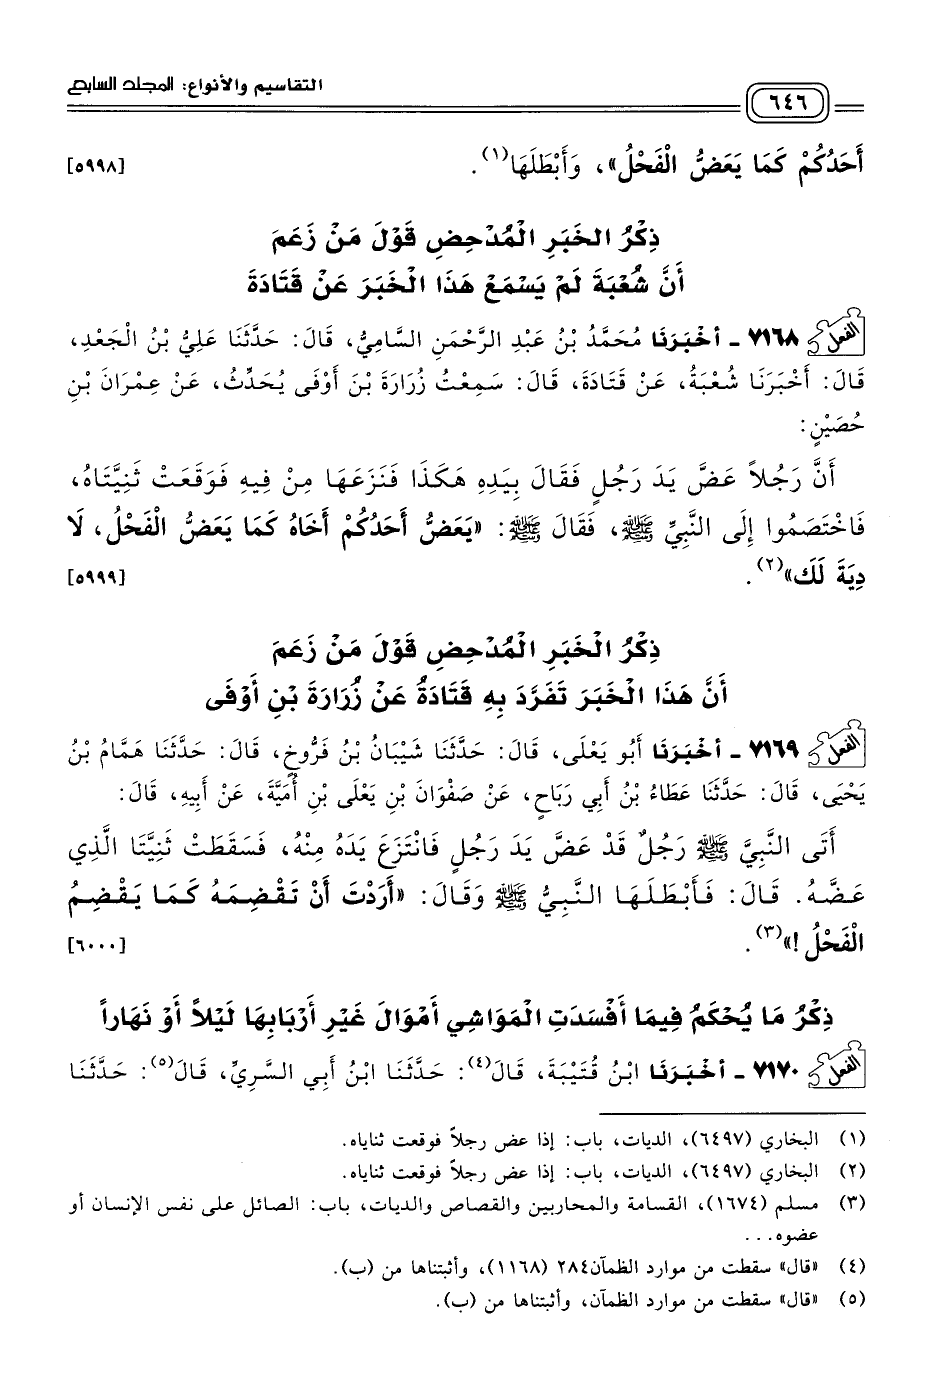 التقاسيم والأنواع: المجلد السابع
٦٤٦
أَحَدُكُمْ كَمَا يَعَضُّ الْفَحْلُ»، وَأَبْطَلَهَا(١). [٥٩٩٨]
ذِكْرُ الخَبَرِ الْمُدْحِضِ قَوْلَ مَنْ زَعَمَ
أَنَّ شُعْبَةَ لَمْ يَسْمَعْ هَذَا الْخَبَرَ عَنْ قَتَادَةَ
الفعل ٧١٦٨ - أخْبَرَنَا مُحَمَّدُ بْنُ عَبْدِ الرَّحْمَنِ السَّامِيُّ، قَالَ: حَدَّثَنَا عَلِيُّ بْنُ الْجَعْدِ،
قَالَ: أَخْبَرَنَا شُعْبَةُ، عَنْ قَتَادَةَ، قَالَ: سَمِعْتُ زُرَارَةَ بْنَ أَوْفَى يُحَدِّثُ، عَنْ عِمْرَانَ بْنِ
حُصَيْنٍ:
أَنَّ رَجُلاً عَضَّ يَدَ رَجُلٍ فَقَالَ بِيَدِهِ هَكَذَا فَنَزَعَهَا مِنْ فِيهِ فَوَقَعَتْ ثَنِيَّتَاهُ،
فَاخْتَصَمُوا إِلَى النَّبِيِّ ﷺ، فَقَالَ ﷺ: «يَعَضُّ أَحَدُكُمْ أَخَاهُ كَمَا يَعَضُّ الْفَحْلُ، لَا
دِيَةَ لَكَ»(٢). [٥٩٩٩]
ذِكْرُ الْخَبَرِ الْمُدْحِضِ قَوْلَ مَنْ زَعَمَ
أَنَّ هَذَا الْخَبَرَ تَفَرَّدَ بِهِ قَتَادَةُ عَنْ زُرَارَةَ بْنِ أَوْفَى
الفعل ٧١٦٩ - أخْبَرَنَا أَبُو يَعْلَى، قَالَ: حَدَّثَنَا شَيْبَانُ بْنُ فَرُّوخٍ، قَالَ: حَدَّثَنَا هَمَّامُ بْنُ
يَحْيَى، قَالَ: حَدَّثَنَا عَطَاءُ بْنُ أَبِي رَبَاحٍ، عَنْ صَفْوَانَ بْنِ يَعْلَى بْنِ أُمَيَّةَ، عَنْ أَبِيهِ، قَالَ:
أَتَى النَّبِيَّ ﷺ رَجُلٌ قَدْ عَضَّ يَدَ رَجُلٍ فَانْتَزَعَ يَدَهُ مِنْهُ، فَسَقَطَتْ ثَنِيَّتَا الَّذِي
عَضَّهُ. قَالَ: فَأَبْطَلَهَا النَّبِيُّ ﷺ وَقَالَ: «أَرَدْتَ أَنْ تَقْضِمَهُ كَمَا يَقْضِمُ
الْفَحْلُ!»(٣). [٦٠٠٠]
ذِكْرُ مَا يُحْكَمُ فِيمَا أَفْسَدَتِ الْمَوَاشِي أَمْوَالَ غَيْرِ أَرْبَابِهَا لَيْلاً أَوْ نَهَاراً
الفعل ٧١٧٠ - أخْبَرَنَا ابْنُ قُتَيْبَةَ، قَالَ(٤): حَدَّثَنَا ابْنُ أَبِي السَّرِيِّ، قَالَ(٥): حَدَّثَنَا
(١) البخاري (٦٤٩٧)، الديات، باب: إذا عض رجلاً فوقعت ثناياه.
(٢) البخاري (٦٤٩٧)، الديات، باب: إذا عض رجلاً فوقعت ثناياه.
(٣) مسلم (١٦٧٤)، القسامة والمحاربين والقصاص والديات، باب: الصائل على نفس الإنسان أو
عضوه...
(٤) «قال» سقطت من موارد الظمآن٢٨٤ (١١٦٨)، وأثبتناها من (ب).
(٥) «قال» سقطت من موارد الظمآن، وأثبتناها من (ب).